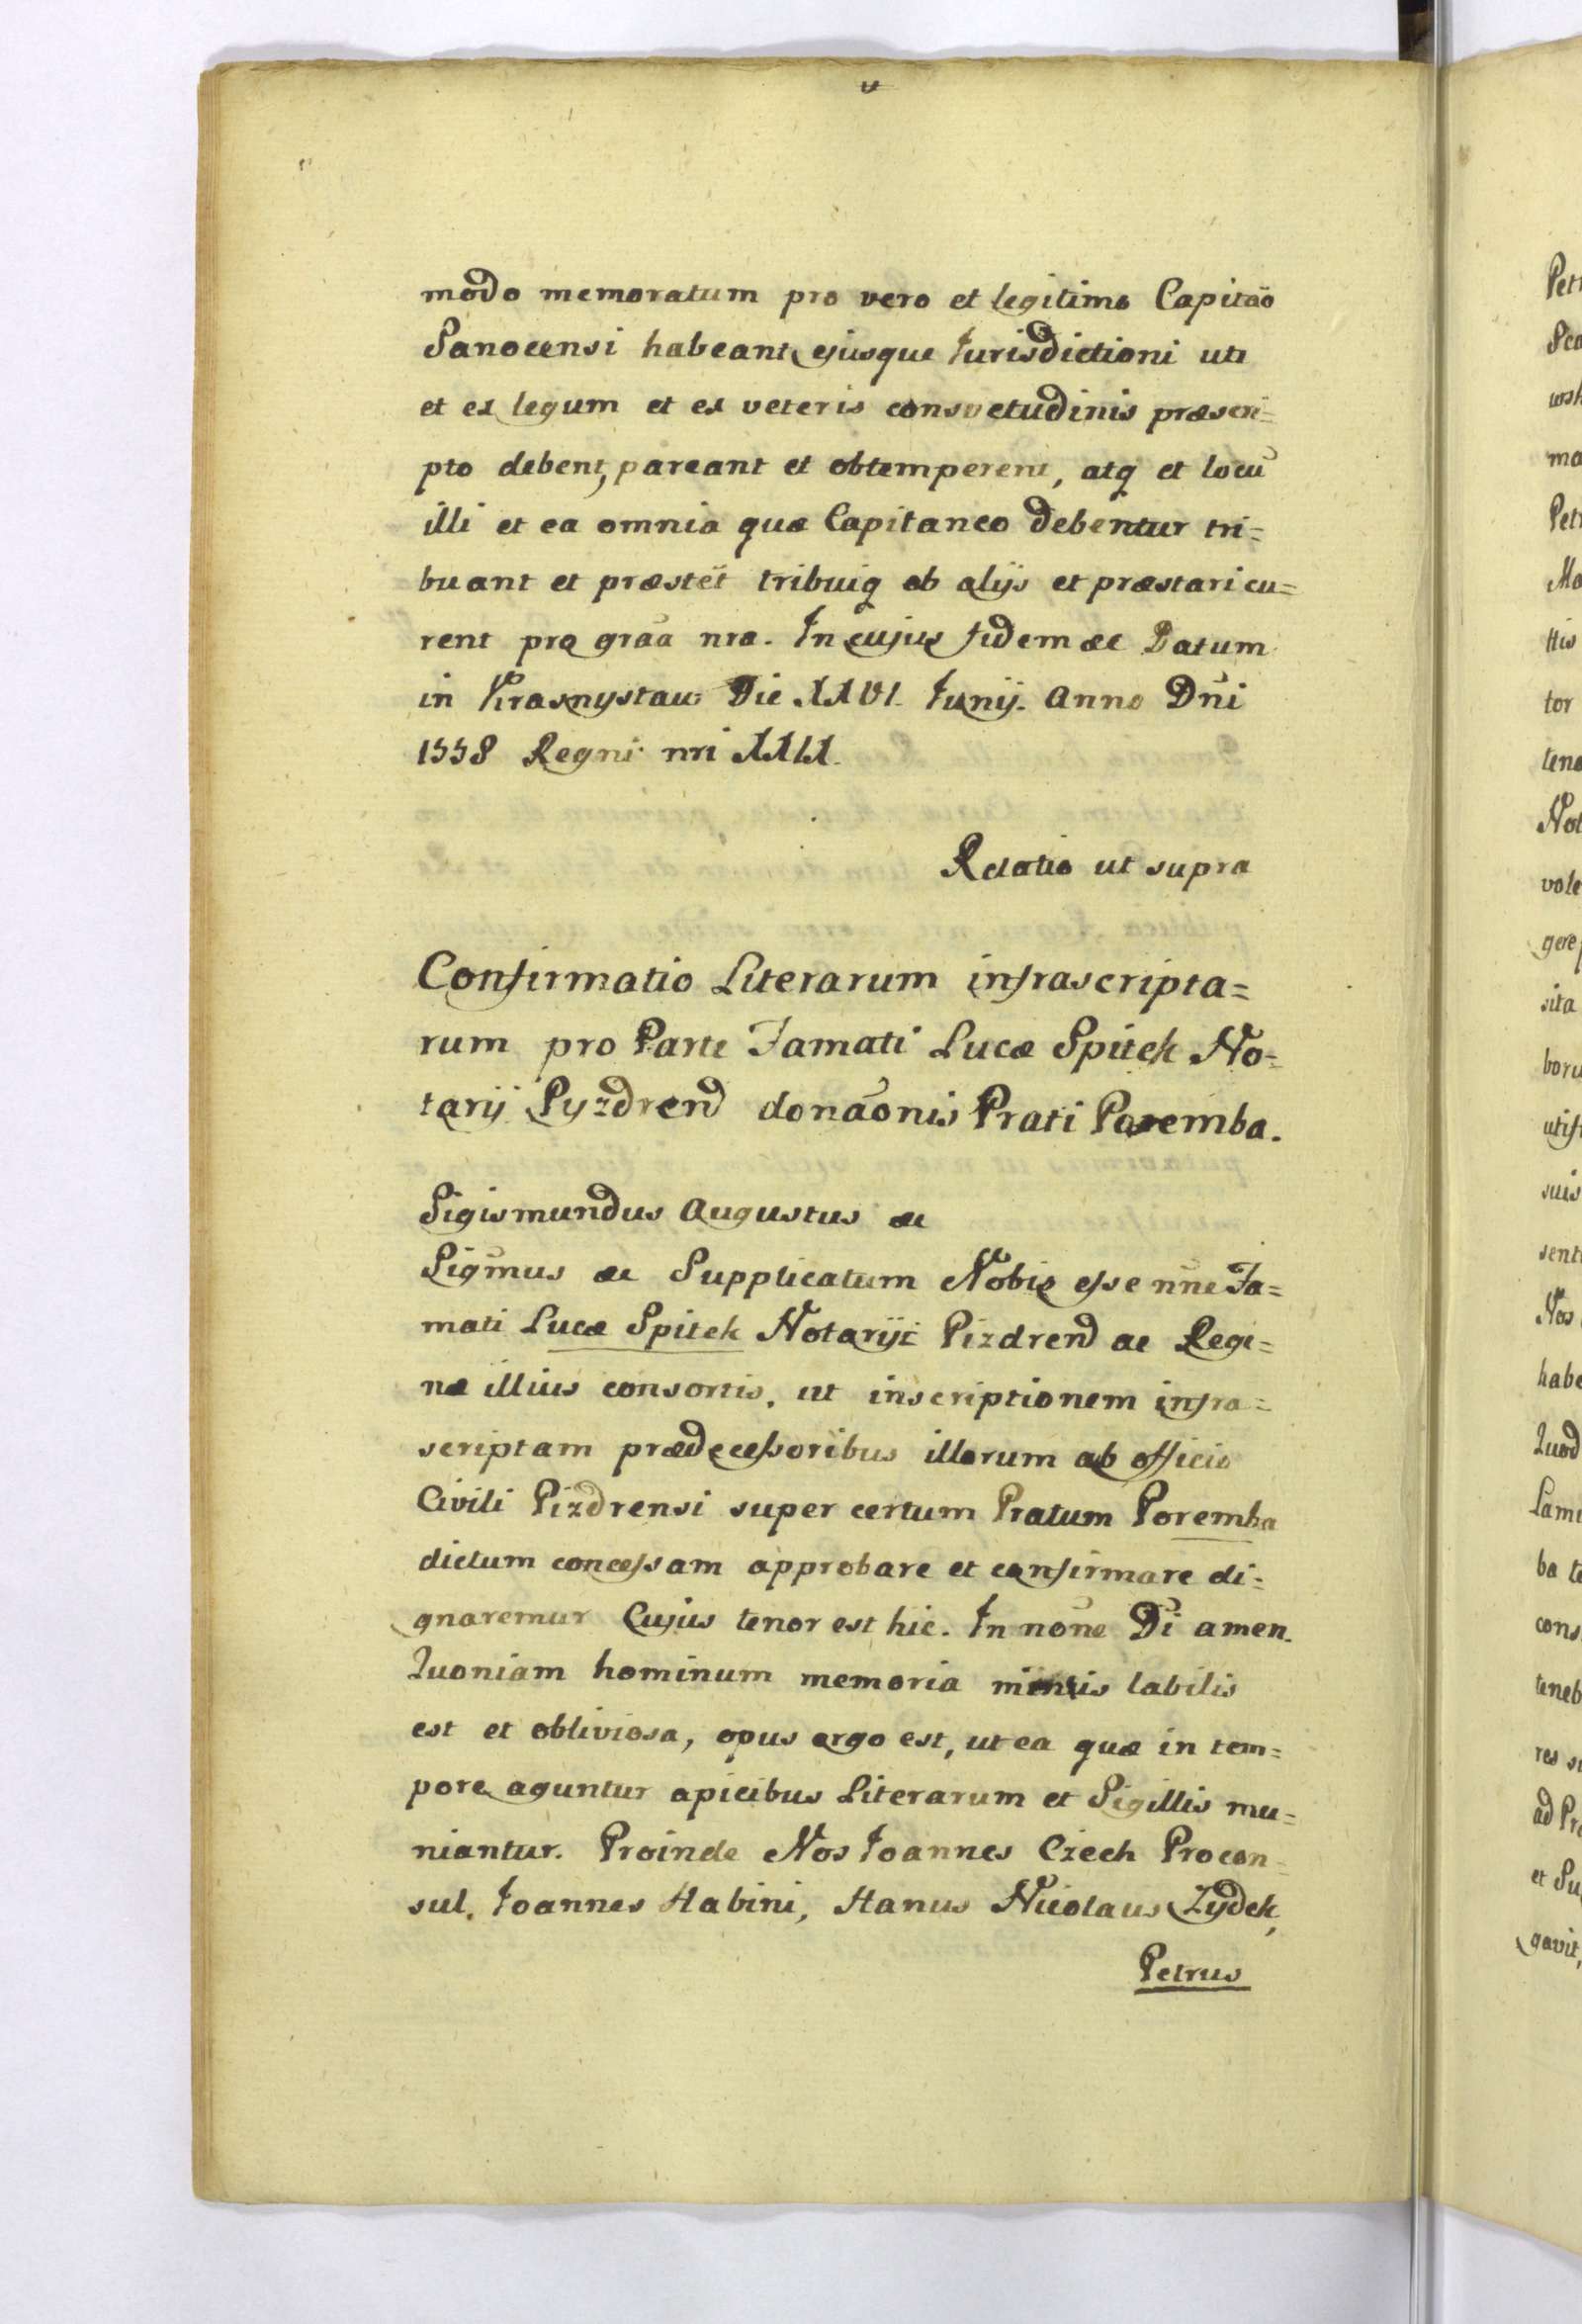 modo memoratum pro vero et legitimo Capitão
Sanocensi habeant ejusque Jurisdictioni uti
et ex legum et ex veteris consvetudinis præscri=
pto debent, pareant et obtemperent, atq et locũ
illi et ea omnia quæ Capitaneo debentur tri=
buant et præstēt tribuiq ab alijs et præstari cu=
rent pro grãa nra. In cujus fidem &c Datum
in Krasnystaw Die XXVI. Junij. Anno Dñi
1558 Regni nri XXIX.
Relatio ut supra
Confirmatio Literarum infrascripta=
rum pro Parte Famati Lucæ Spitek No=
tarij Pyzdren donãonis Prati Poremba.
Sigismundus Augustus &c
Sigmũs &c Supplicatum Nobis esse nñe Fa=
mati Lucæ Spitek Notarij Pizdren ac Regi=
næ illius consortis, ut inscriptionem infra=
scriptam prædecessoribus illorum ab officio
Civili Pizdrensi super certum Pratum Poremba
dictum concessam approbare et confirmare di=
gnaremur Cujus tenor est hic. In noñe Di amen.
Quoniam hominum memoria labilis
est et obliviosa, opus ergo est, ut ea quæ in tem=
pore aguntur apicibus Literarum et Sigillis mu=
niantur. Proinde Nos Joannes Czech Procon=
sul, Joannes Habini, Hanus Nicolaus Zydek,
Petrus